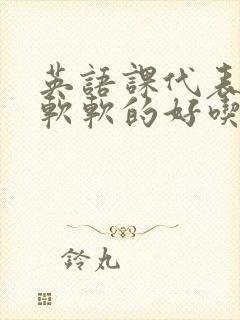 英語課代表
軟軟的好喫
鈴丸